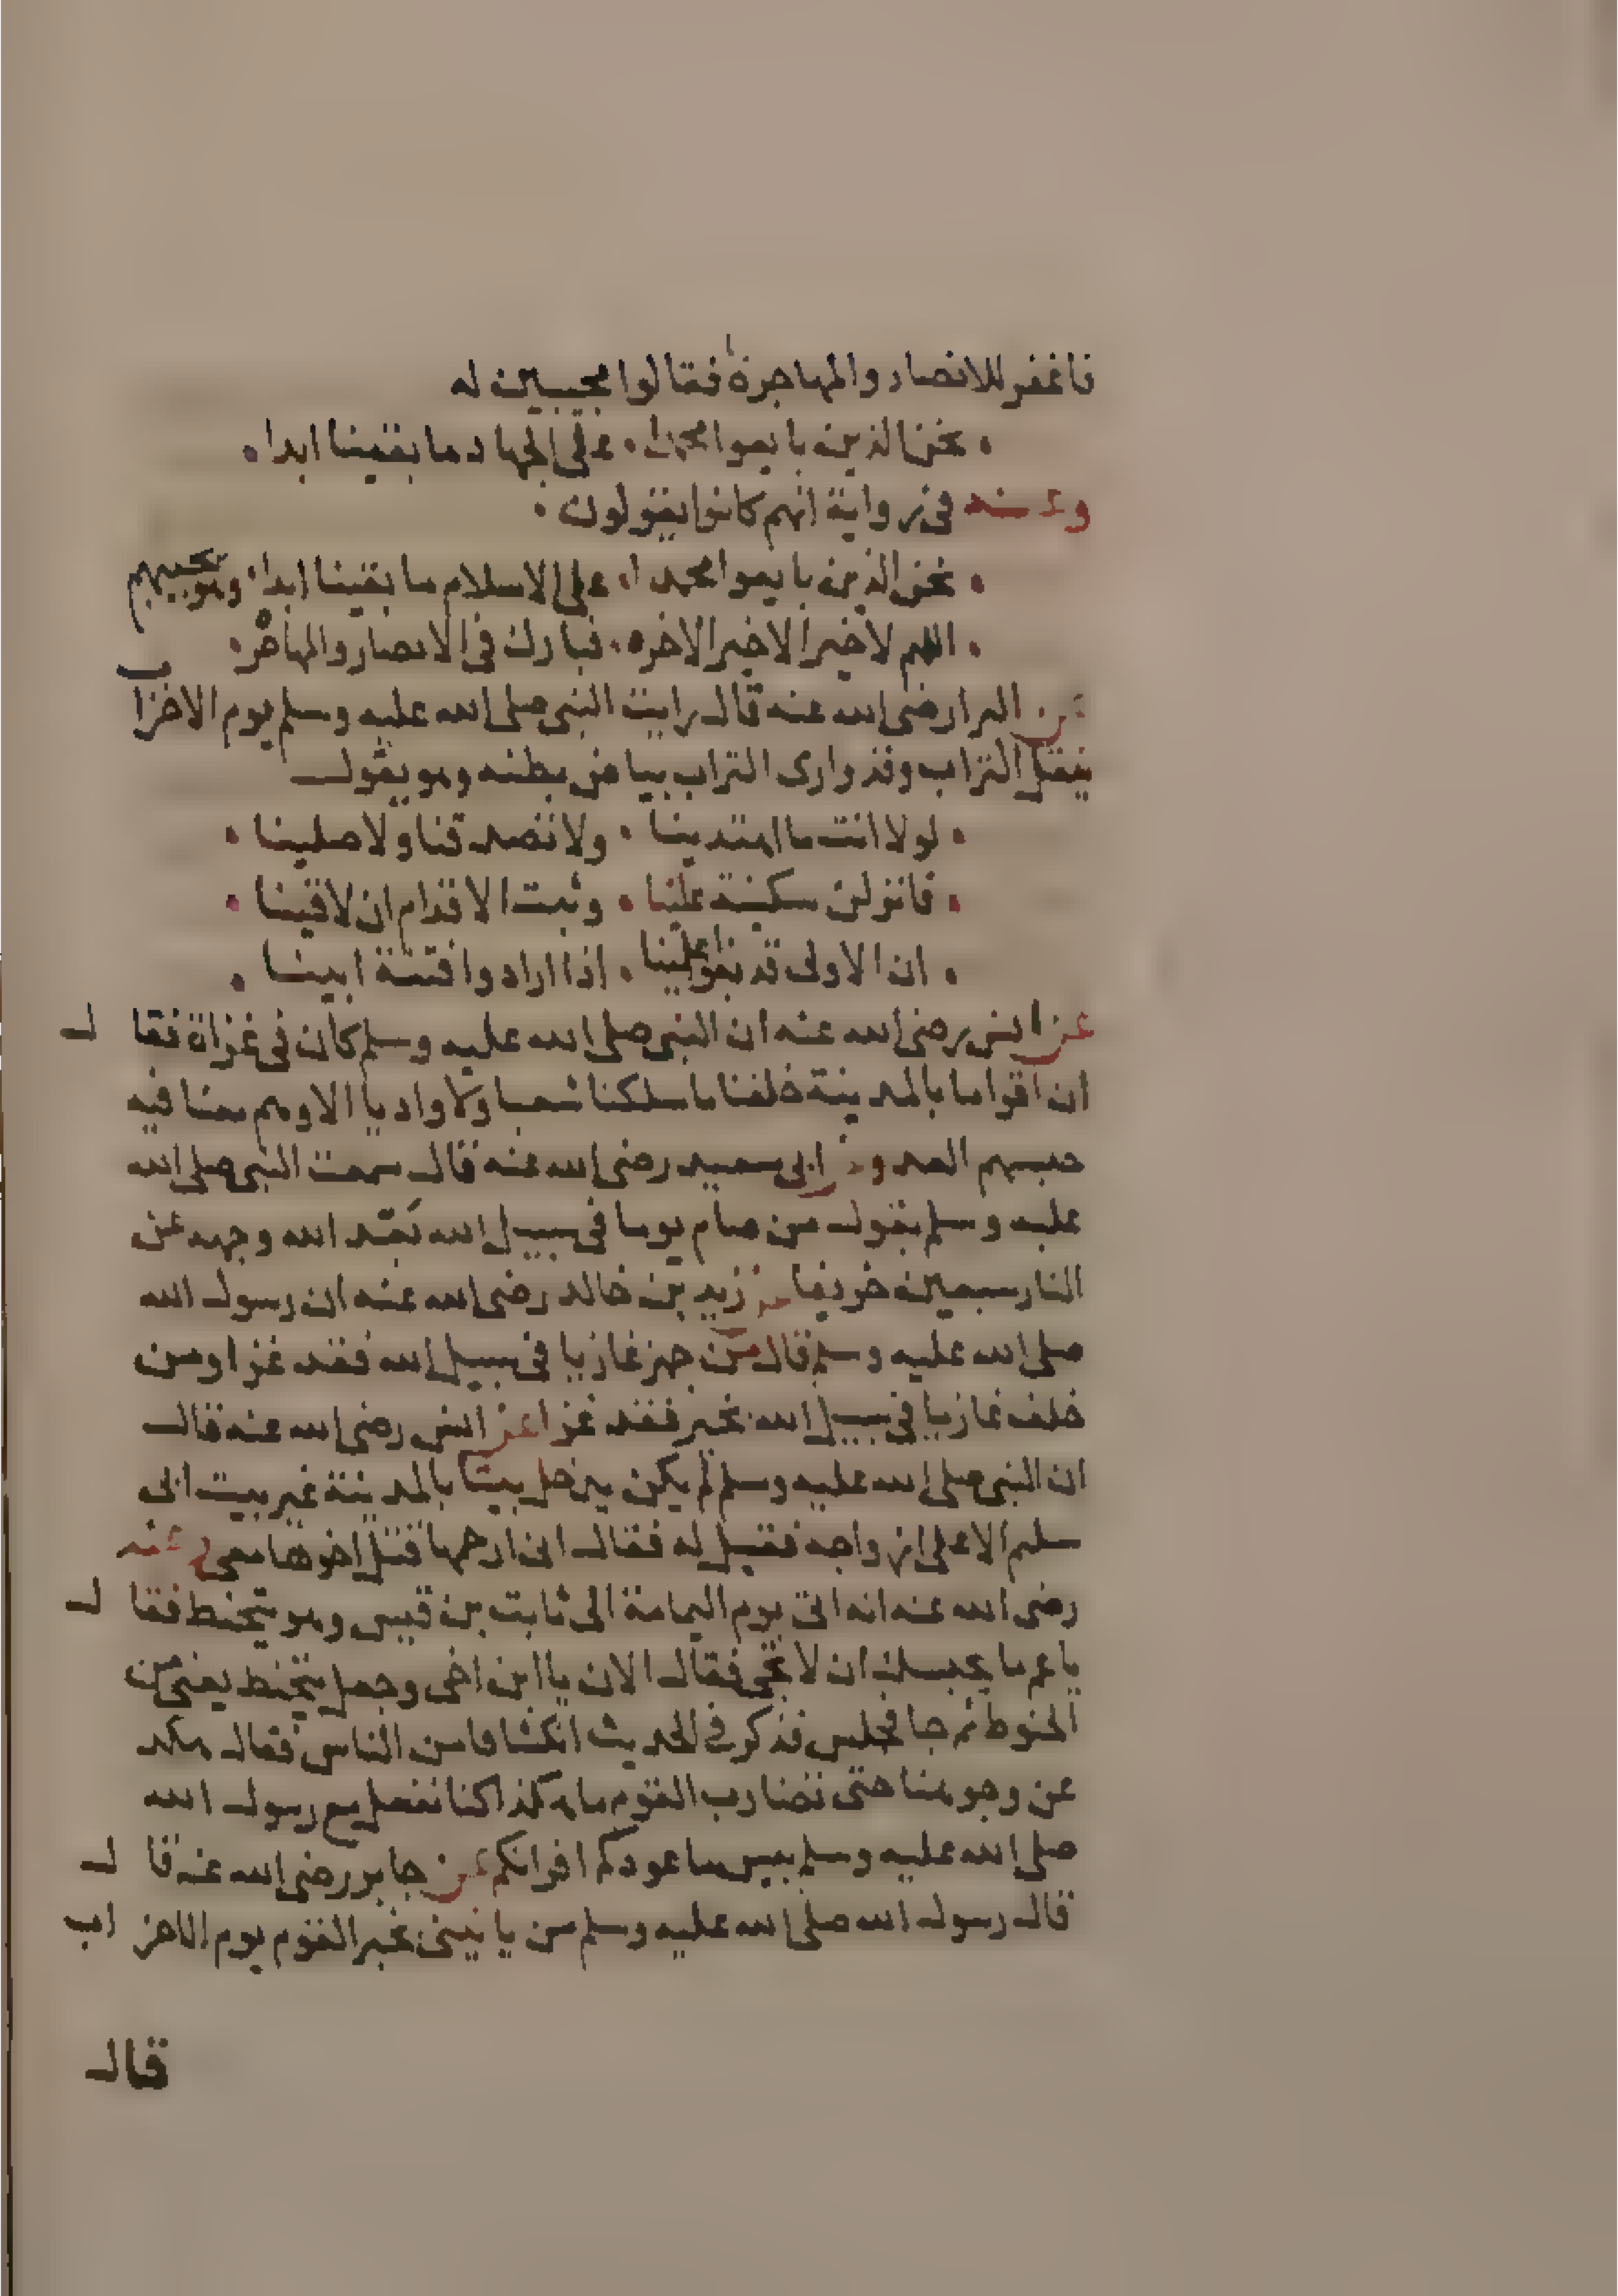 فاغفر للانصار والمهاجرة فقالوا مجيبين له
نحن الذين بايعوا محمدا على الجهاد ما بقينا ابدا
وعنه في رواية انهم كانوا يقولون
نحن الذين بايعوا محمدا على الاسلام ما بقينا ابدا وهو يجيبهم
اللهم لا خير الا خير الاخره فبارك في الانصار والمهاجره
عن البرا رضي الله عنه قال رايت النبي صلى الله عليه وسلم يوم الاحزاب
ينقل التراب وقد وارى التراب بياض بطنه وهو يقول
لولا انت ما اهتدينا ولا تصدقنا ولا صلينا
فانزلن سكينة علينا وثبت الاقدام ان لاقينا
ان الاولى قد بغوا علينا اذا ارادوا فتنة ابينا
عن انس رضي الله عنه ان النبي صلى الله عليه وسلم كان في غزاة فقال
ان اقواما بالمدينة خلفنا ما سلكنا شعبا ولا واديا الا وهم معنا فيه
حبسهم العذر عن ابي سعيد رضي الله عنه قال سمعت النبي صلى الله
عليه وسلم يقول من صام يوما في سبيل الله بعد الله وجهه عن
النار سبعين خريفا عن زيد بن خالد رضي الله عنه ان رسول الله
صلى الله عليه وسلم قال من جهز غازيا في سبيل الله فقد غزا ومن
خلف غازيا في سبيل الله بخير فقد غزا عن انس رضي الله عنه قال
ان النبي صلى الله عليه وسلم لم يكن يدخل بيتا بالمدينة غير بيت ام
سليم الا على ازواجه فقيل له فقال اني ارحمها قتل اخوها معي وعنه
رضي الله عنه انه اتى يوم اليمامة الى ثابت بن قيس وهو يتحنط فقال
يا عم ما يحبسك ان لا تجي فقال الان يا ابن اخي وجعل يتحنط يعني من
الحنوط ثم جا فجلس فذكر في الحديث انكشافا من الناس فقال هكذا
عن وجوهنا حتى نضارب القوم ما هكذا كنا نفعل مع رسول الله
صلى الله عليه وسلم بيس ما عودكم اقرانكم عن جابر رضي الله عنه قال
قال رسول الله صلى الله عليه وسلم من ياتيني بخبر القوم يوم الاحزاب
قال